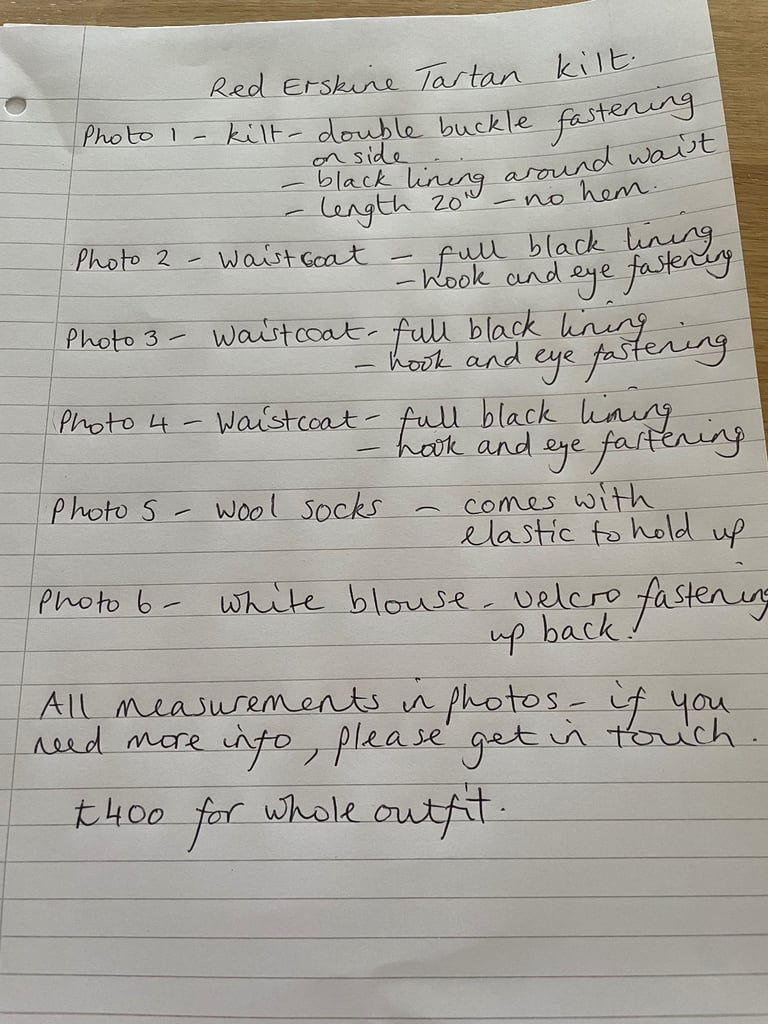 Red Erskine Tartan kilt.
Photo 1 - kilt - double buckle fastening
on side
- black lining around waist
- length 20" - no hem.
Photo 2 - Waistcoat - full black lining
- hook and eye fastening
Photo 3 - Waistcoat - full black lining
- hook and eye fastening
Photo 4 - Waistcoat - full black lining
- hook and eye fastening
Photo 5 - wool socks - comes with
elastic to hold up
Photo 6 - white blouse - velcro fastening
up back.
All measurements in photos - if you
need more info, please get in touch.
£400 for whole outfit.